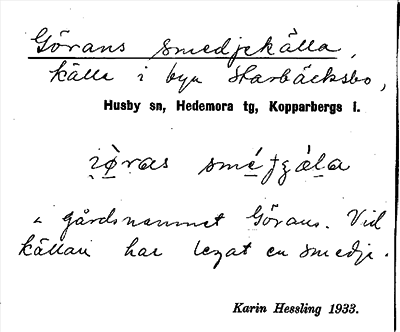 Görans smedjekälla,
källa i byn Skarbäcksbo,
Husby sn, Hedemora tg, Kopparbergs l.
i̯ø̀ras smé̱jɡa̱la
gårdsnamnet Görans. Vid
källan har legat en smedja.
Karin Hessling 1933.